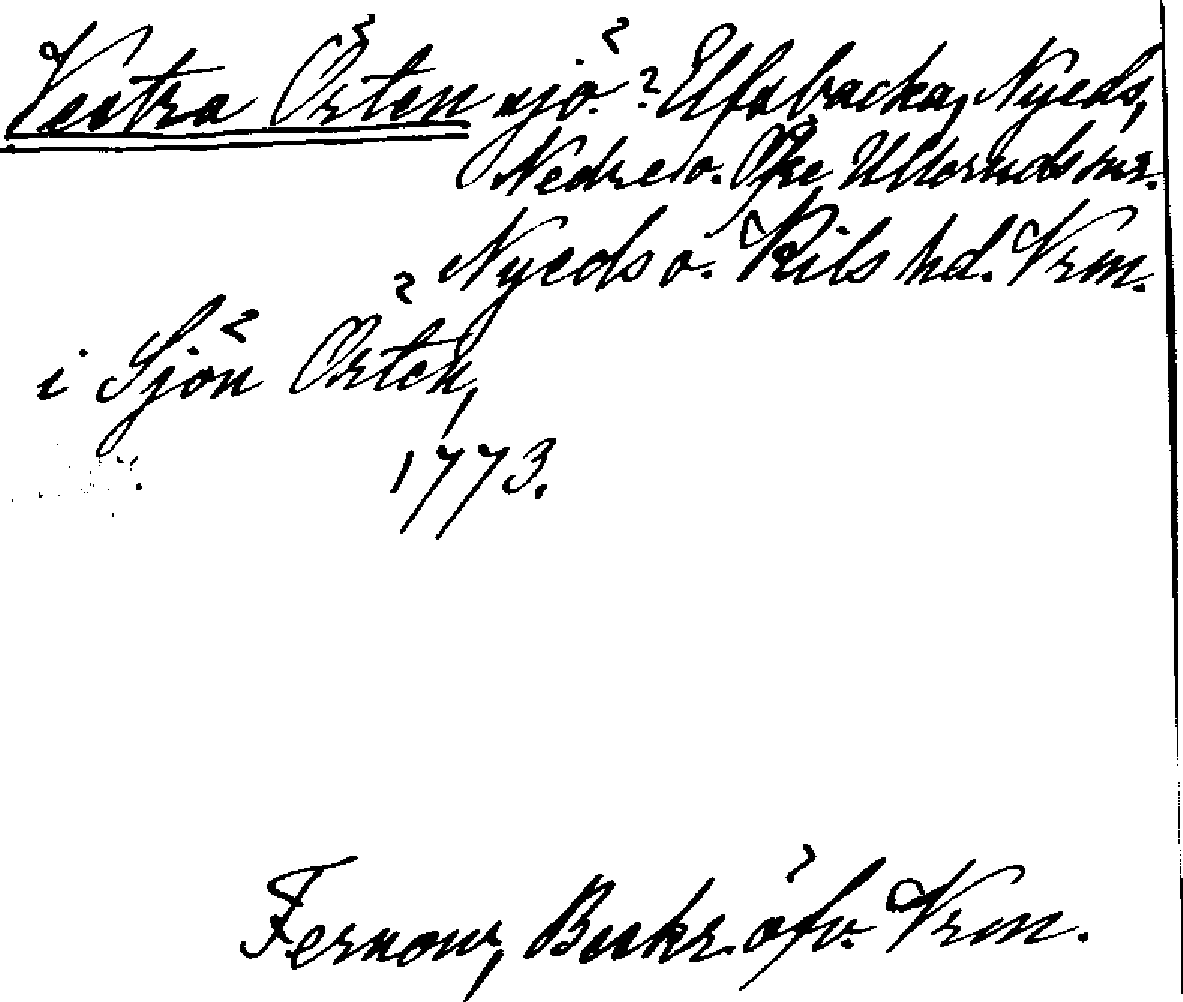 Vestra Örten sjö. ? Elfsbacka, Nyeds,
Nedre o. Öfre Ulleruds snr.
Nyeds o. Kils hd. Vrm.
i Sjön Örten,
1773.
Fernow, Beskr. öfv. Vrm.